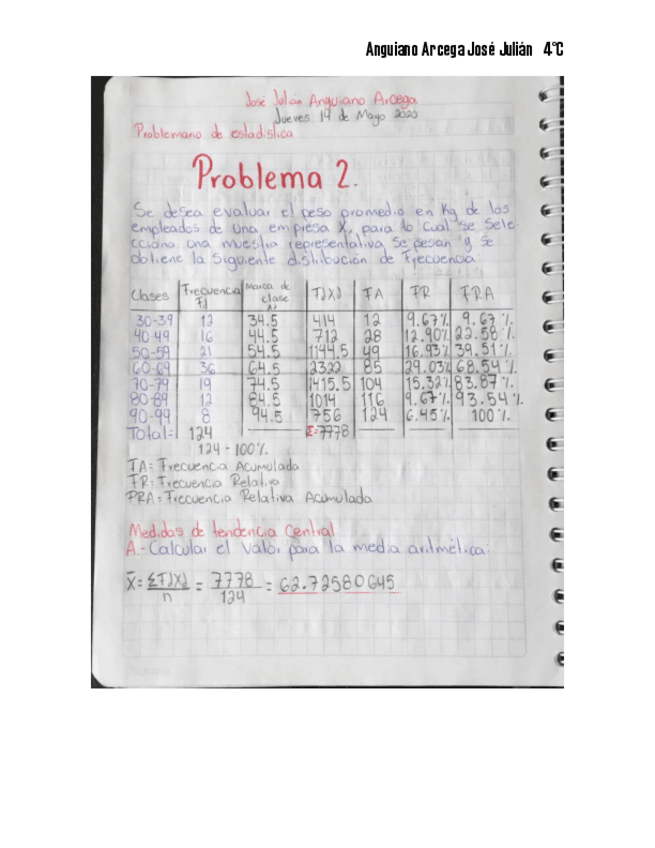 Anguiano Arcega José Julián 4°C
José Julián Anguiano Arcega
Jueves 14 de Mayo 2020
Problemario de estadistica
Problema 2.
Se desea evaluar el peso promedio en Kg de los
empleados de una empresa X, para lo cual se sele-
cciona una muestra representativa se pesan y se
obtiene la siguiente distribución de frecuencia:
Clases Frecuencia Fj Marca de clase Xj FjXj FA FR FRA
30-39 12 34.5 414 12 9.67% 9.67%
40-49 16 44.5 712 28 12.90% 22.58%
50-59 21 54.5 1144.5 49 16.93% 39.51%
60-69 36 64.5 2322 85 29.03% 68.54%
70-79 19 74.5 1415.5 104 15.32% 83.87%
80-89 12 84.5 1014 116 9.67% 93.54%
90-99 8 94.5 756 124 6.45% 100%
Total= 124 Σ=7778
124 - 100%
FA= Frecuencia Acumulada
FR= Frecuencia Relativa
FRA= Frecuencia Relativa Acumulada
Medidas de tendencia Central
A.- Calcular el valor para la media aritmética:
X̄= ΣFjXj/n = 7778/124 = 62.72580645